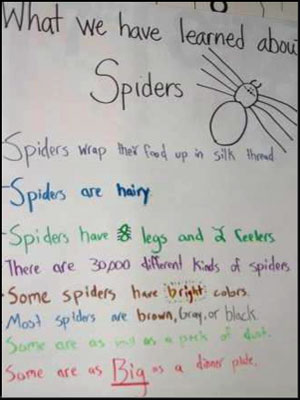 What we have learned about
Spiders
Spiders wrap their food up in silk thread.
-Spiders are hairy.
-Spiders have 8 legs and 2 feelers
There are 30,000 different kinds of spiders
-Some spiders have bright colors.
Most spiders are brown, Gray, or black.
Some are as as a speck of dust.
Some are as Big as a dinner plate.